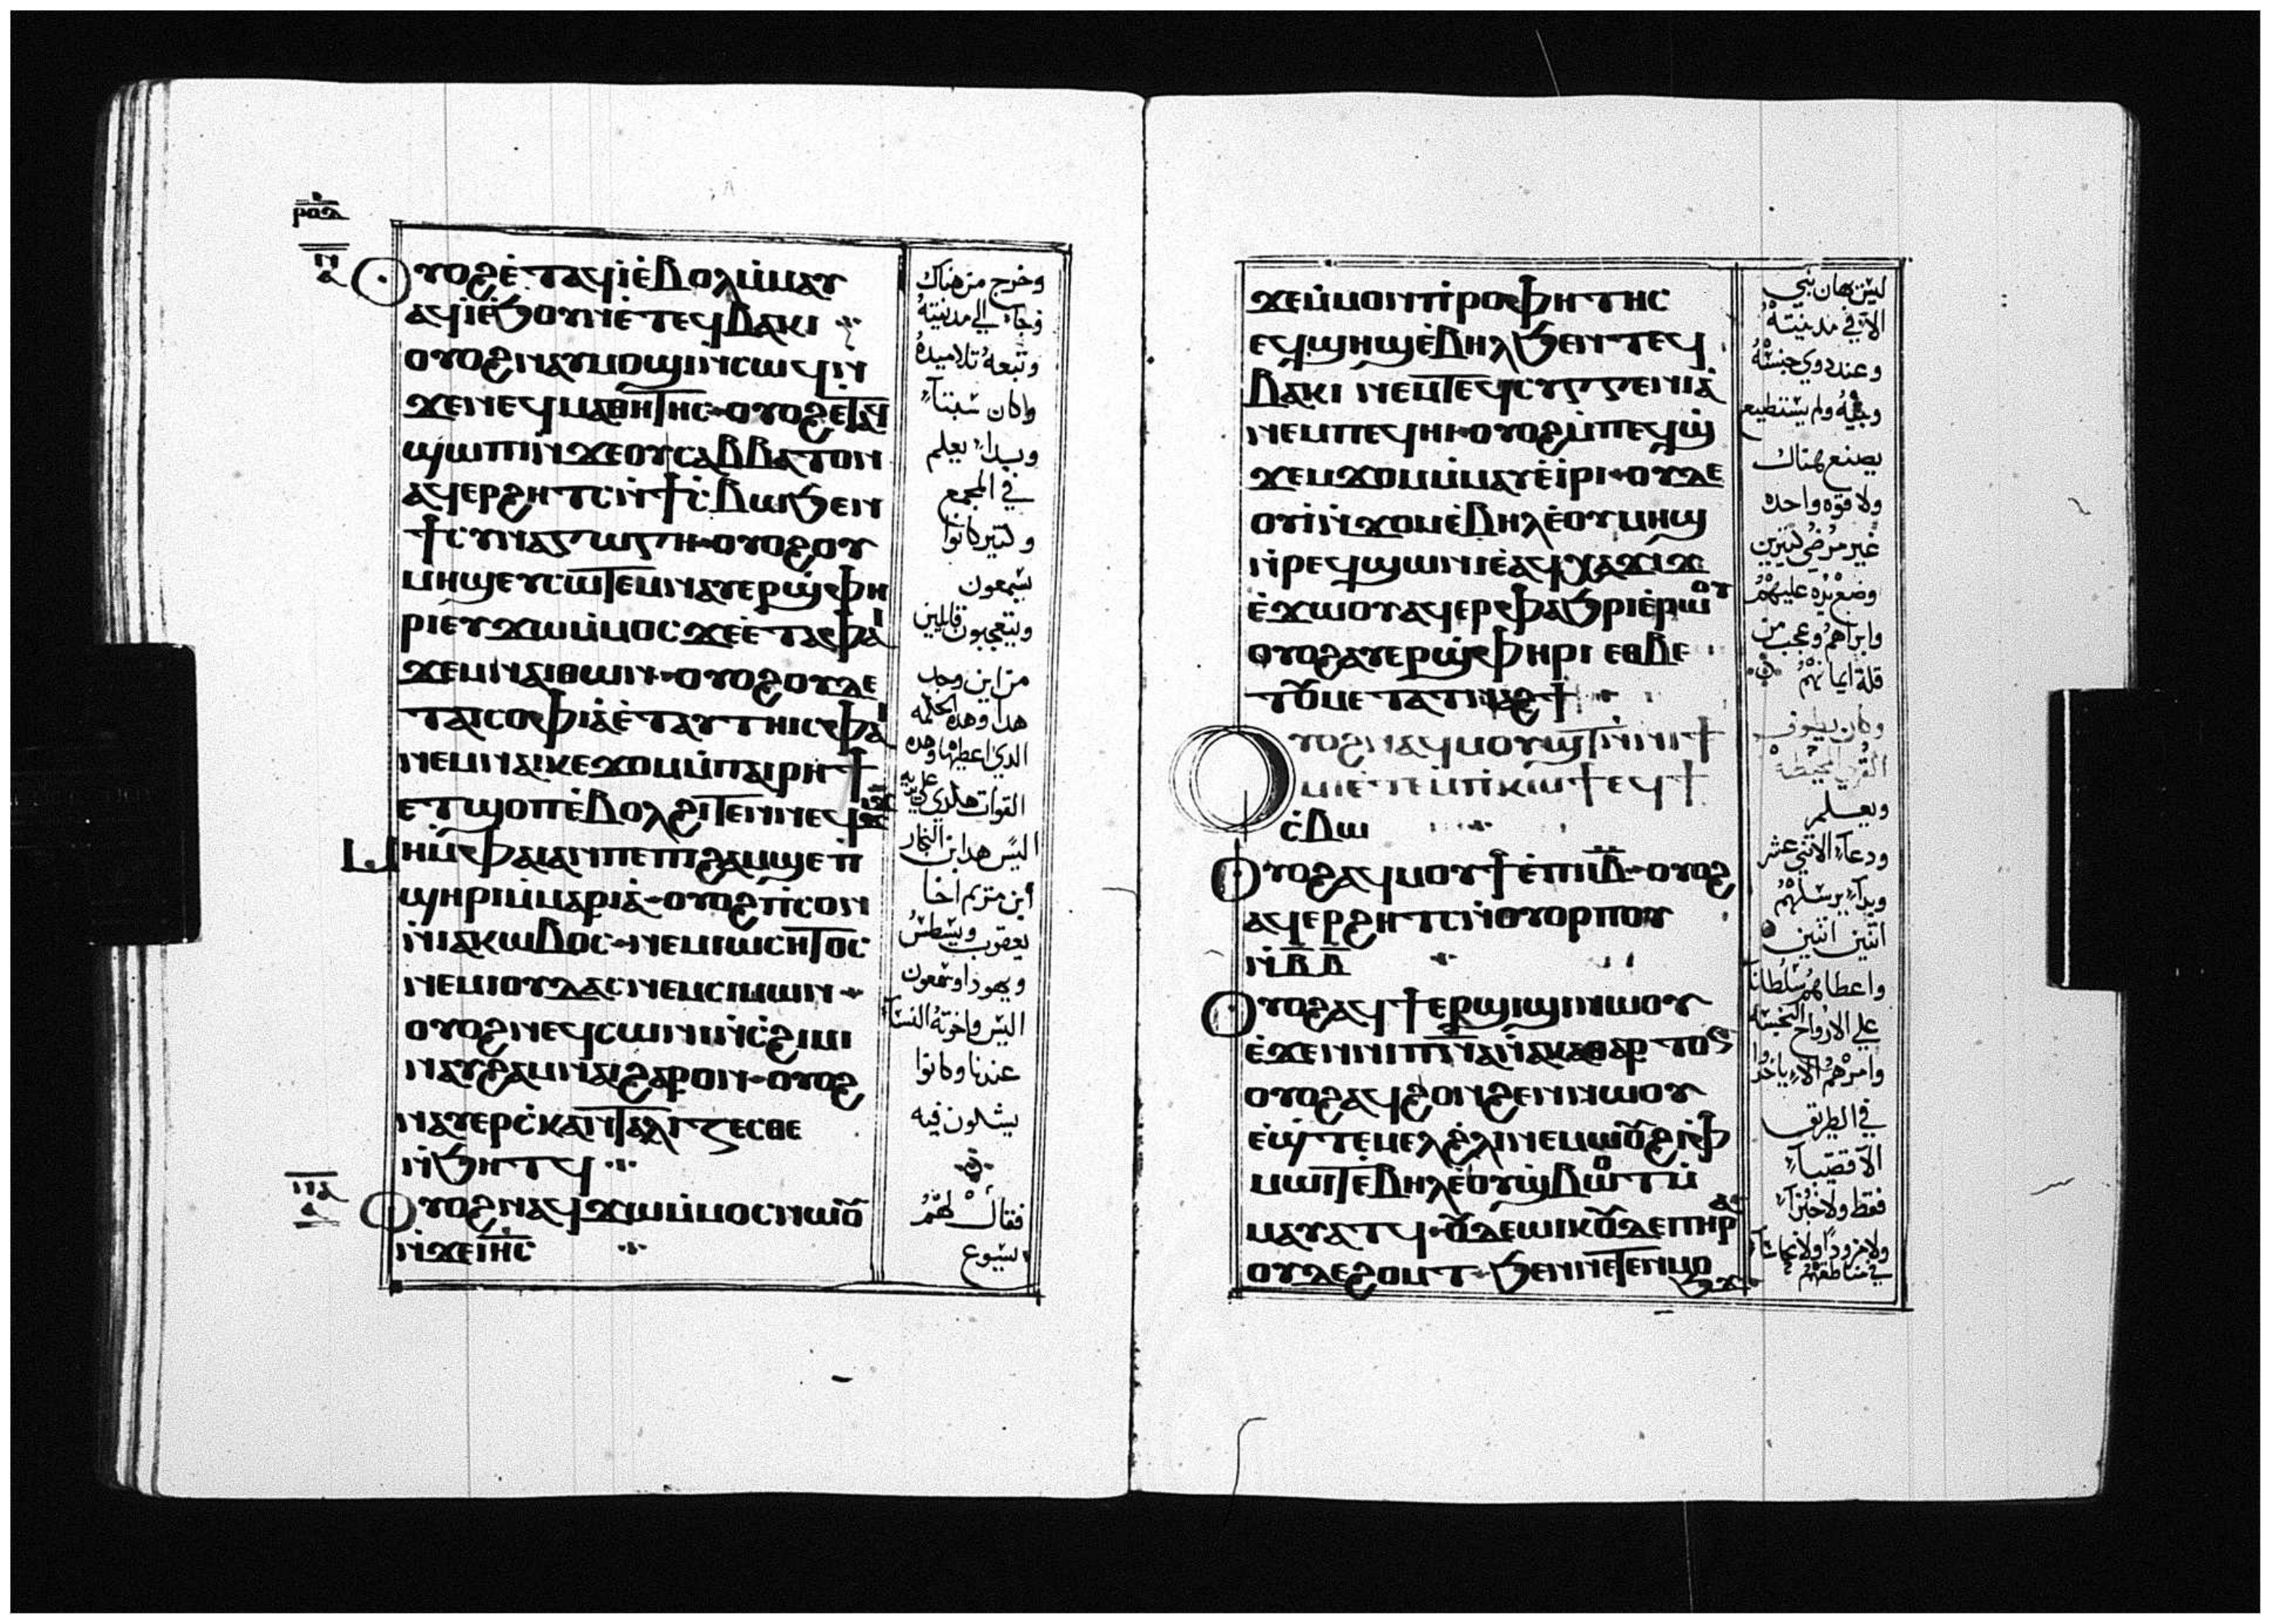 ⲣⲟⲁ
ⲡ
ⲁ
ⲟⲩⲟϩ ⲉ̀ⲧⲁϥⲓ̀ ⲉ̀ⲃⲟⲗ ⲙ̀ⲙⲁⲩ
ⲁϥⲓ̀ ⲉ̀ϧⲟⲩⲛ ⲉ̀ ⲧⲉϥⲃⲁⲕⲓ
ⲟⲩⲟϩ ⲛⲁⲩⲙⲟϣⲓ ⲛ̀ⲥⲱϥ ⲛ̀
ϫⲉ ⲛⲉϥⲙⲁⲑⲏⲧⲏⲥ ⲟⲩⲟϩ ⲉⲧⲁϥ
ϣⲱⲡⲓ ⲛ̀ϫⲉ ⲟⲩⲥⲁⲃⲃⲁⲧⲟⲛ
ⲁϥⲉⲣϩⲏⲧⲥ ⲛ̀ϯⲥ̀ⲃⲱ ϧⲉⲛ
ϯⲥⲩⲛⲁⲅⲱⲅⲏ ⲟⲩⲟϩ ⲟⲩ
ⲙⲏϣ ⲉⲩⲥⲱⲧⲉⲙ ⲛⲁⲩⲉⲣϣ̀ⲫⲏ
ⲣⲓ ⲉⲩϫⲱ ⲙ̀ⲙⲟⲥ ϫⲉ ⲉ̀ⲧⲁ ⲫⲁⲓ
ϫⲉⲙ ⲛⲁⲓ ⲑⲱⲛ ⲟⲩⲟϩ ⲟⲩⲇⲉ
ⲧⲁⲓⲥⲟⲫⲓⲁ̀ ⲉ̀ⲧⲁⲩⲧⲏⲓⲥ ⲫⲁⲓ
ⲛⲉⲙ ⲛⲁⲓⲕⲉϫⲟⲙ ⲙ̀ⲡⲁⲓⲣⲏϯ
ⲉⲧϣⲟⲡ ⲉ̀ⲃⲟⲗ ϩⲓⲧⲉⲛ ⲛⲉϥϫⲓϫ
ⲙⲏ ⲙ̀ⲫⲁⲓ ⲁⲛ ⲡⲉ ⲡⲓϩⲁⲙϣⲉ ⲡ̀
ϣⲏⲣⲓ ⲙ̀ⲙⲁⲣⲓⲁ̀ ⲟⲩⲟϩ ⲡ̀ⲥⲟⲛ
ⲛ̀ⲓⲁⲕⲱⲃⲟⲥ ⲛⲉⲙ ⲓⲱⲥⲏⲧⲟⲥ
ⲛⲉⲙ ⲓⲟⲩⲇⲁⲥ ⲛⲉⲙ ⲥⲓⲙⲱⲛ
ⲟⲩⲟϩ ⲛⲉϥⲥⲱⲛⲓ ⲛ̀ⲥ̀ϩⲓⲙⲓ
ⲛⲁⲩϩⲁⲙⲛⲁⲓ ϩⲁⲣⲟⲛ ⲟⲩⲟϩ
ⲛⲁⲩⲉⲣⲥ̀ⲕⲁⲛⲧⲁⲗⲓⲍⲉⲥⲑⲉ
ⲛ̀ϧⲏⲧϥ
ⲡⲁ
ⲁ
ⲟⲩⲟϩ ⲛⲁϥϫⲱ ⲙ̀ⲙⲟⲥ ⲛⲱⲟⲩ
ⲛ̀ϫⲉ ⲓⲏⲥ
وخرج من هناك
وجاء الي مدينته
وتبعه تلاميده
وكان سبتاً
وبداء يعلم
في المجمع
وكتير كانوا
يسمعون
ويتعجبون قايلين
من اين وجد
هدا وهده الحكمه
الدي اعطيها وهده
القوات هكدي علي يديه
اليس هدا ابن النجار
ابن مريم اخا
يعقوب ويسطس
ويهودا وسمعون
اليس واخوته النسا
عندنا وكانوا
يشكون فيه
فقال لهم
يسوع
ϫⲉ ⲙ̀ⲙⲟⲛ ⲡ̀ⲣⲟⲫⲏⲧⲏⲥ
ⲉϥϣⲏϣ ⲉ̀ⲃⲏⲗ ϧⲉⲛ ⲧⲉϥ
ⲃⲁⲕⲓ ⲛⲉⲙ ⲧⲉϥⲥⲩⲅⲅⲉⲛⲓⲁ̀
ⲛⲉⲙ ⲡⲉϥⲏⲓ ⲟⲩⲟϩ ⲙ̀ⲡⲉϥϣ̀
ϫⲉⲙϫⲟⲙ ⲙ̀ⲙⲁⲩ ⲉ̀ⲓⲣⲓ ⲟⲩⲇⲉ
ⲟⲩⲓ̀ ⲛ̀ϫⲟⲙ ⲉ̀ⲃⲏⲗ ⲉ̀ⲟⲩⲙⲏϣ
ⲛ̀ⲣⲉϥϣⲱⲛⲓ ⲉ̀ⲁϥⲭⲁϫⲓϫ
ⲉ̀ϫⲱⲟⲩ ⲁϥⲉⲣⲫⲁϧⲣⲓ ⲉ̀ⲣⲱⲟⲩ
ⲟⲩⲟϩ ⲁⲩⲉⲣϣ̀ⲫⲏⲣⲓ ⲉⲑⲃⲉ
ⲧⲟⲩⲙⲉⲧⲁⲧⲛⲁϩϯ
ⲟⲩⲟϩ ⲛⲁϥⲙⲟⲩϣⲧ ⲛ̀ⲛⲓϯ
ⲙⲓ ⲉ̀ⲧⲉⲙⲡ̀ⲕⲱϯ ⲉϥϯ
ⲥ̀ⲃⲱ
ⲟⲩⲟϩ ⲁϥⲙⲟⲩϯ ⲉ̀ⲡⲓⲓⲃ ⲟⲩⲟϩ
ⲁϥⲉⲣϩⲏⲧⲥ ⲛ̀ⲟⲩⲟⲣⲡⲟⲩ
ⲛ̀ⲃ ⲃ
ⲟⲩⲟϩ ⲁϥϯⲉⲣϣⲓϣⲓ ⲛⲱⲟⲩ
ⲉ̀ϫⲉⲛ ⲛⲓⲡⲛⲁ ⲛ̀ⲁⲕⲁⲑⲁⲣⲧⲟⲥ
ⲟⲩⲟϩ ⲁϥϩⲟⲛϩⲉⲛ ⲛⲱⲟⲩ
ⲉ̀ϣ̀ⲧⲉⲙⲉⲗϩ̀ⲗⲓ ⲛⲉⲙⲱⲟⲩ ϩⲓ ⲫ̀
ⲙⲱⲓⲧ ⲉ̀ⲃⲏⲗ ⲉ̀ⲟⲩϣ̀ⲃⲱⲧ ⲙ̀
ⲙⲁⲩⲁⲧϥ ⲟⲩⲇⲉ ⲱⲓⲕ ⲟⲩⲇⲉ ⲡⲏⲣⲁ
ⲟⲩⲇⲉ ϩⲟⲙⲧ ϧⲉⲛ ⲛⲉⲧⲉⲛⲙⲟ
ϧϫ
ليس يهان نبي
الا في مدينته
وعند دوي جنسه
وبيته ولم يستطيع
يصنع هناك
ولا قوه واحده
غير مرضي كتيرين
وضع يده عليهم
وابراهم وعجب من
قلة ايمانهم
وكان يطوف
القري المحيطة
ويعلم
ودعاء الاتني عشر
وبداء يرسلهم
اتنين اتنين
واعطاهم سلطانا
علي الارواح النجسه
وامرهم الا ياخدوا
في الطريق
الا قضيباً
فقط ولا خبزاً
ولا مزوداً ولا نحاساً
في مناطقهم